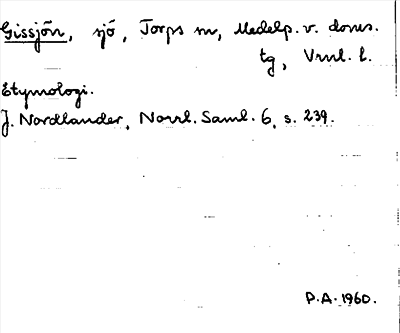 Gissjön, sjö, Torps sn, Medelp. v. doms.
tg, Vrnl. l.
Etymologi.
J. Nordlander, Norrl. Saml. 6, s. 239.
P.A. 1960.